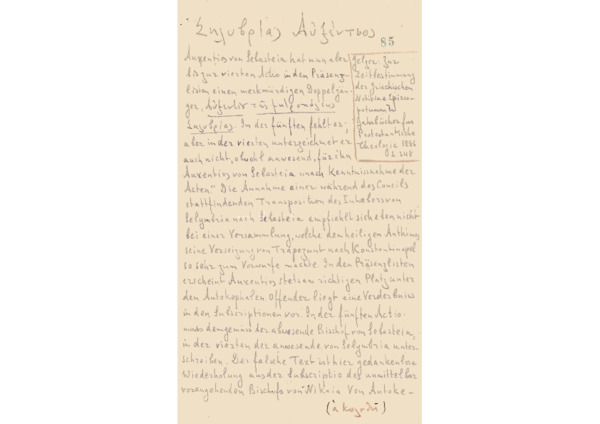 Σηλυβρίας Αὐξέντιος
85
Auxentios von Sebasteia hat nun aber
bis zur vierten Actio in den Präsenz-
listen einen merkwürdigen Doppelgän-
ger, Αὐξεντίου τῆς μητροπόλεως
Σηλυβρίας. In der fünften fehlt er;
aber in der vierten unterzeichnet er
auch nicht, obwohl anwesend, für ihn
Auxentios von Sebasteia „nach Kenntnissnahme der
Acten." Die Annahme einer während des Concils
stattfindenden Transposition des Inhabers von
Selymbria nach Sebasteia empfiehlt sich eben nicht
bei einer Versammlung, welche den heiligen Anthimus
seine Versetzung von Trapezunt nach Konstantinopel
so sehr zum Vorwurfe machte. In den Präsenzlisten
erscheint Auxentios stets am richtigen Platz unter
den Autokephalen. Offenbar liegt eine Verderbniss
in den Subscriptionen vor. In der fünften Actio
muss demgemäss der abwesende Bischof von Sebasteia,
in der vierten der anwesende von Selymbria unter-
schreiben. Der falsche Text ist hier gedankenlose
Wiederholung aus der Subscriptio des unmittelbar
vorangehenden Bischofs von Nikaia. Von Autoke-
(ἀκολουθεῖ)
Gelzer: Zur
Zeitbestimmung
der Griechischen
Notitiae Episco-
patuum
Jahrbücher für
Protestantische
Theologie 1886
S. 348